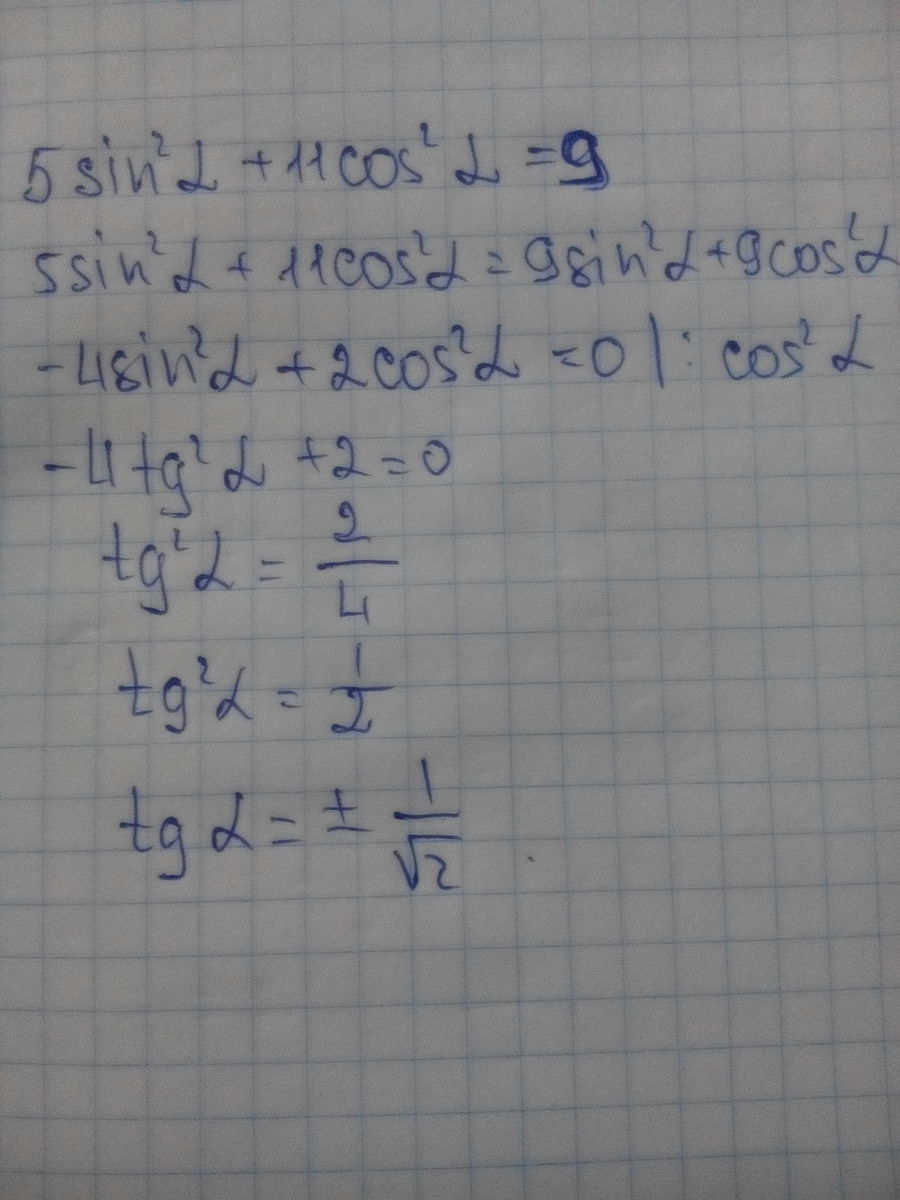 5sin²α + 11cos²α = 9
5sin²α + 11cos²α = 9sin²α + 9cos²α
-4sin²α + 2cos²α = 0 | : cos²α
-4tg²α + 2 = 0
tg²α = 2/4
tg²α = 1/2
tg α = ± 1/√2